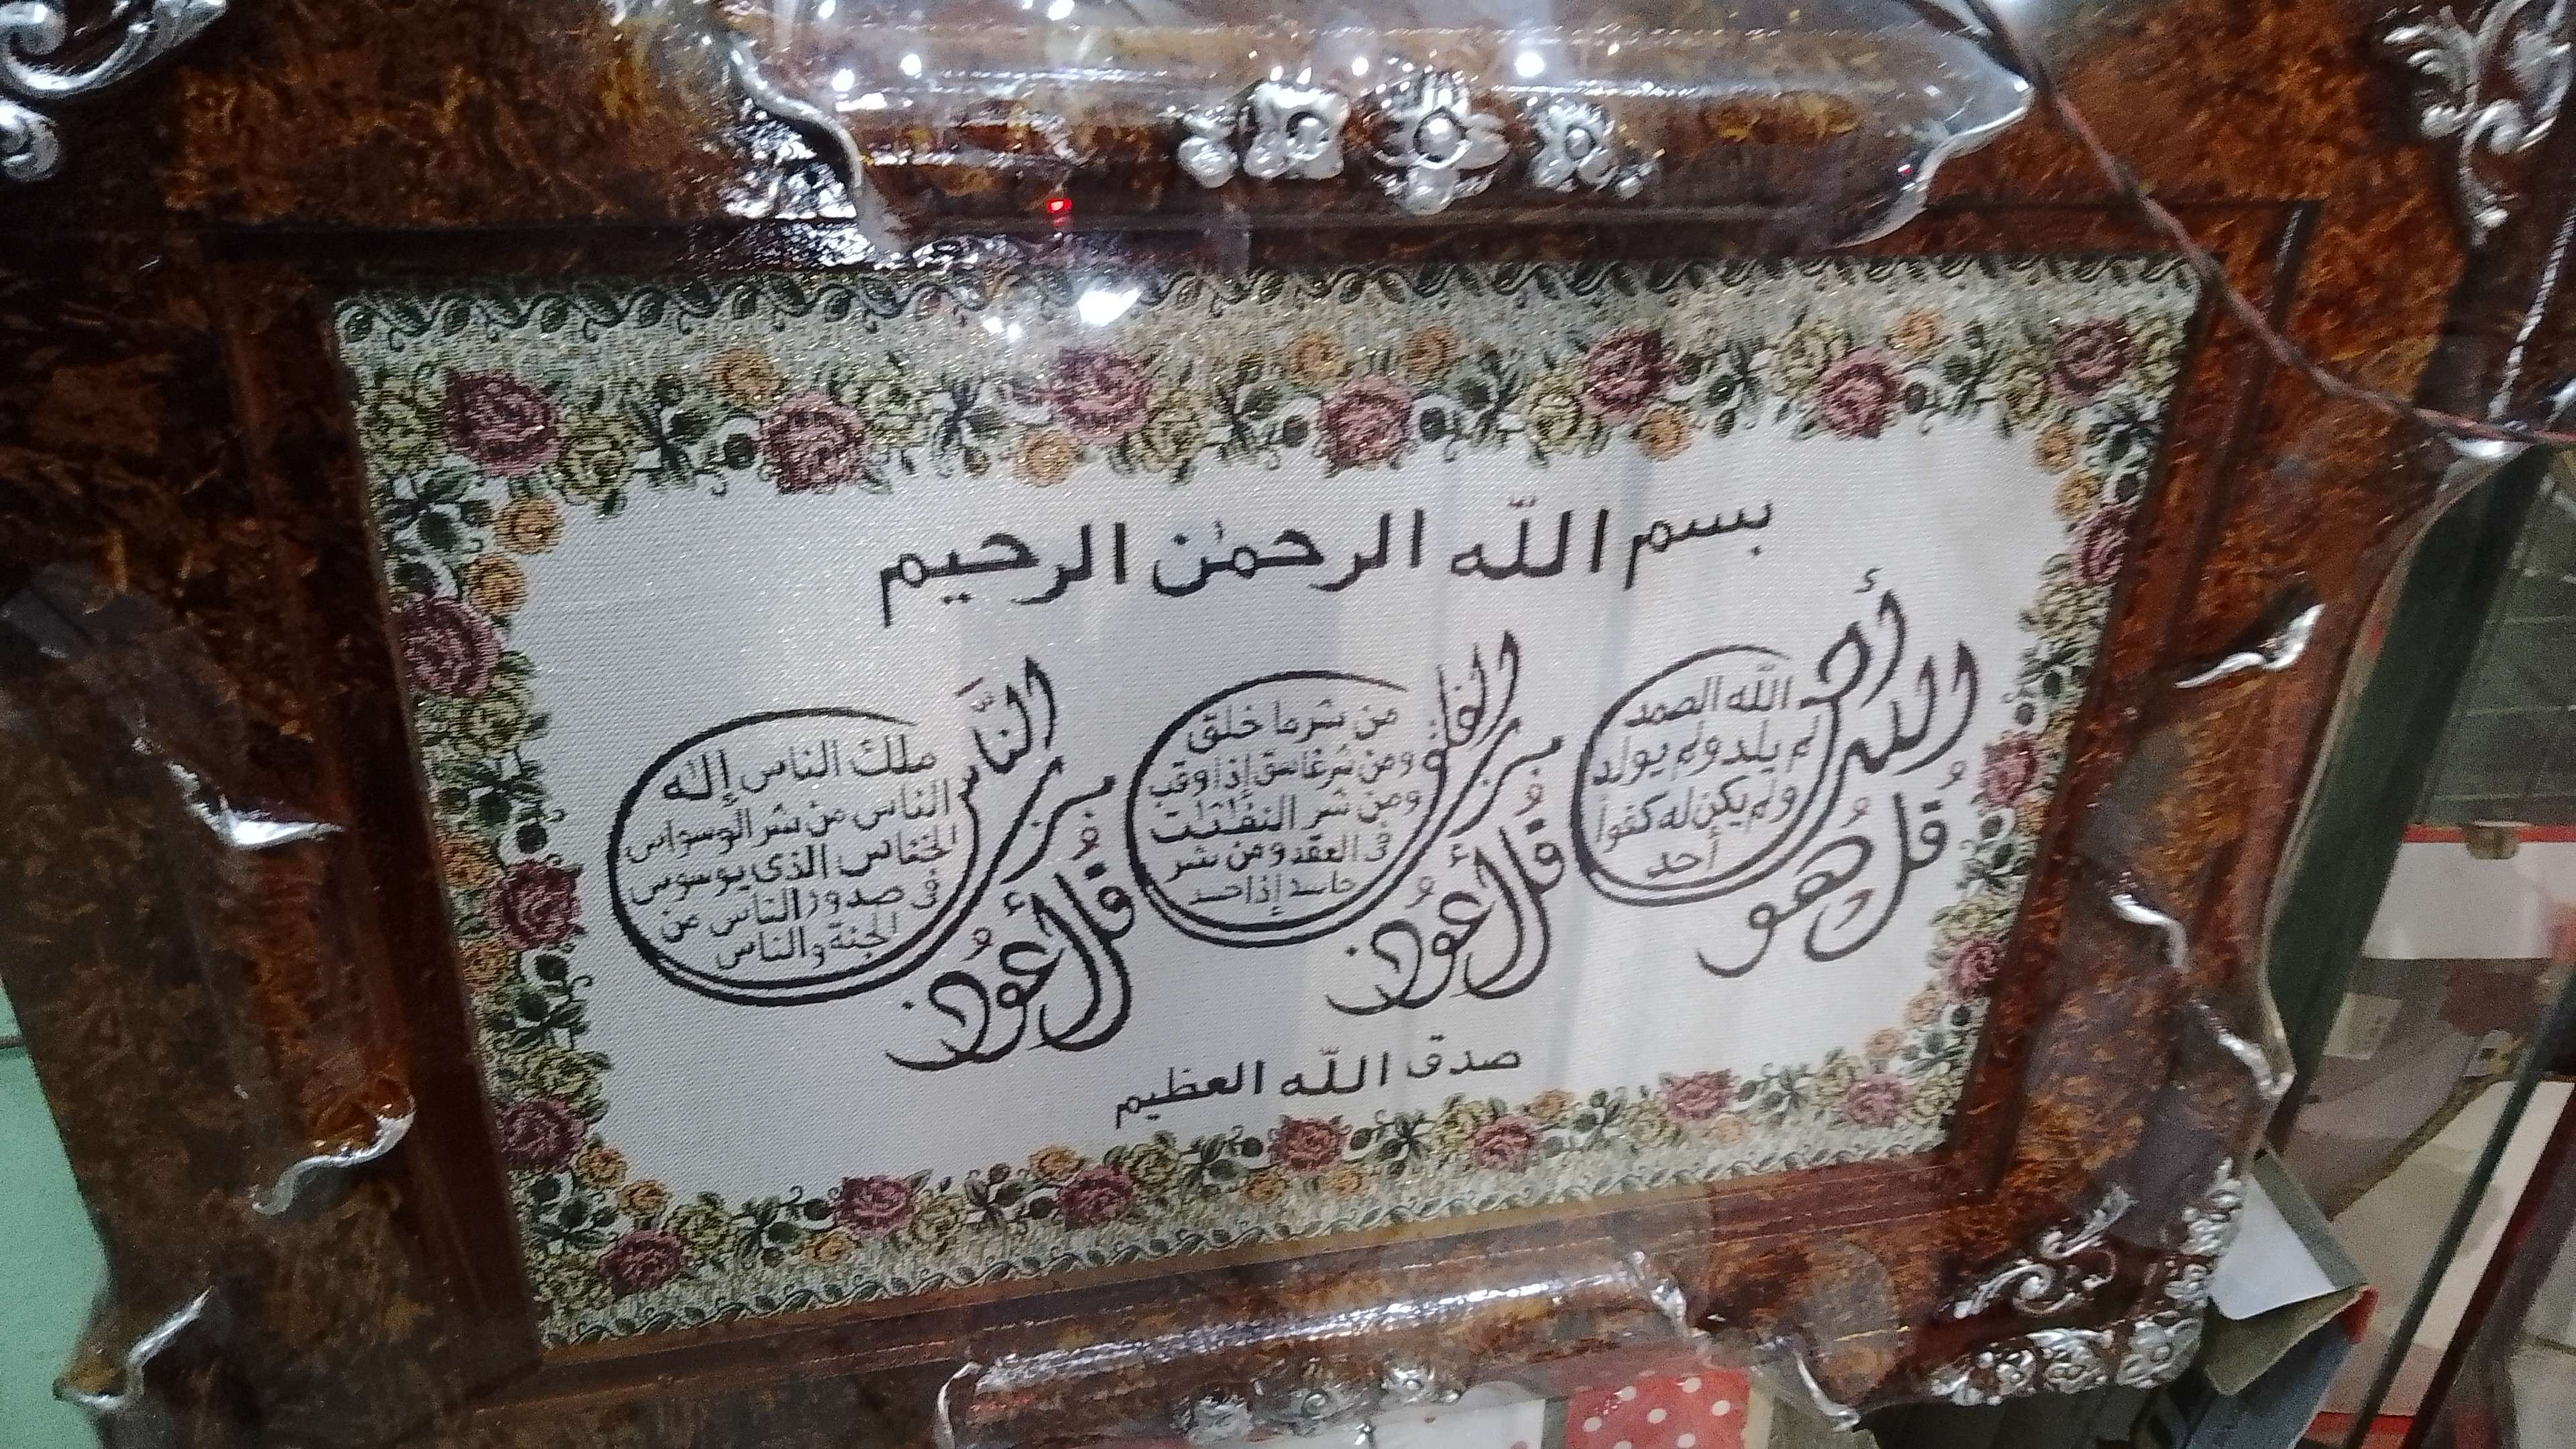 بسم اللّه الرحمٰن الرحيم
قُل هُو
اللّه
أحد
اللّه الصمد
لم يلد ولم يولد
ولم يكن له كفوا
أحد
قُل أعُوذ
برب
الفلق
من شر ما خلق
ومن شر غاسق إذا وقب
ومن شر النفٰثٰت
فى العقد ومن شر
حاسد إذا حسد
قُل أعُوذ
برب
النَّاس
ملك الناس إلٰه
الناس من شر الوسواس
الخناس الذى يوسوس
فى صدور الناس من
الجنة والناس
صدق اللّه العظيم